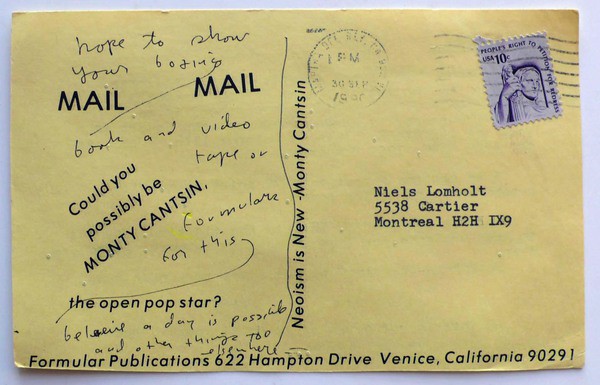 hope to show
your boxing
MAIL MAIL
book and video
tape or
Could you
possibly be
MONTY CANTSIN,
Formulars
for this
the open pop star?
believe a day is possible
and other things too
elsewhere
Neoism is New -Monty Cantsin
1 PM
30 SEP
PEOPLE'S RIGHT TO PETITION FOR REDRESS
USA 10c
Niels Lomholt
5538 Cartier
Montreal H2H IX9
Formular Publications 622 Hampton Drive Venice, California 90291